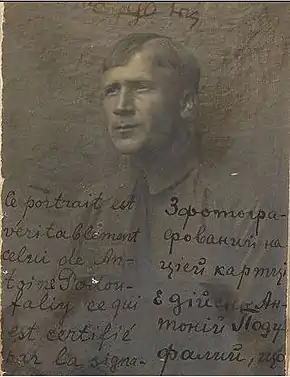 le portrait est
véritablement
celui de An-
toine Podou-
faliy ce qui
est certifié
par la signa-
Зфотогра-
фований на
цієй картці
Є дійсно Ан-
тоній Поду-
фалий, що